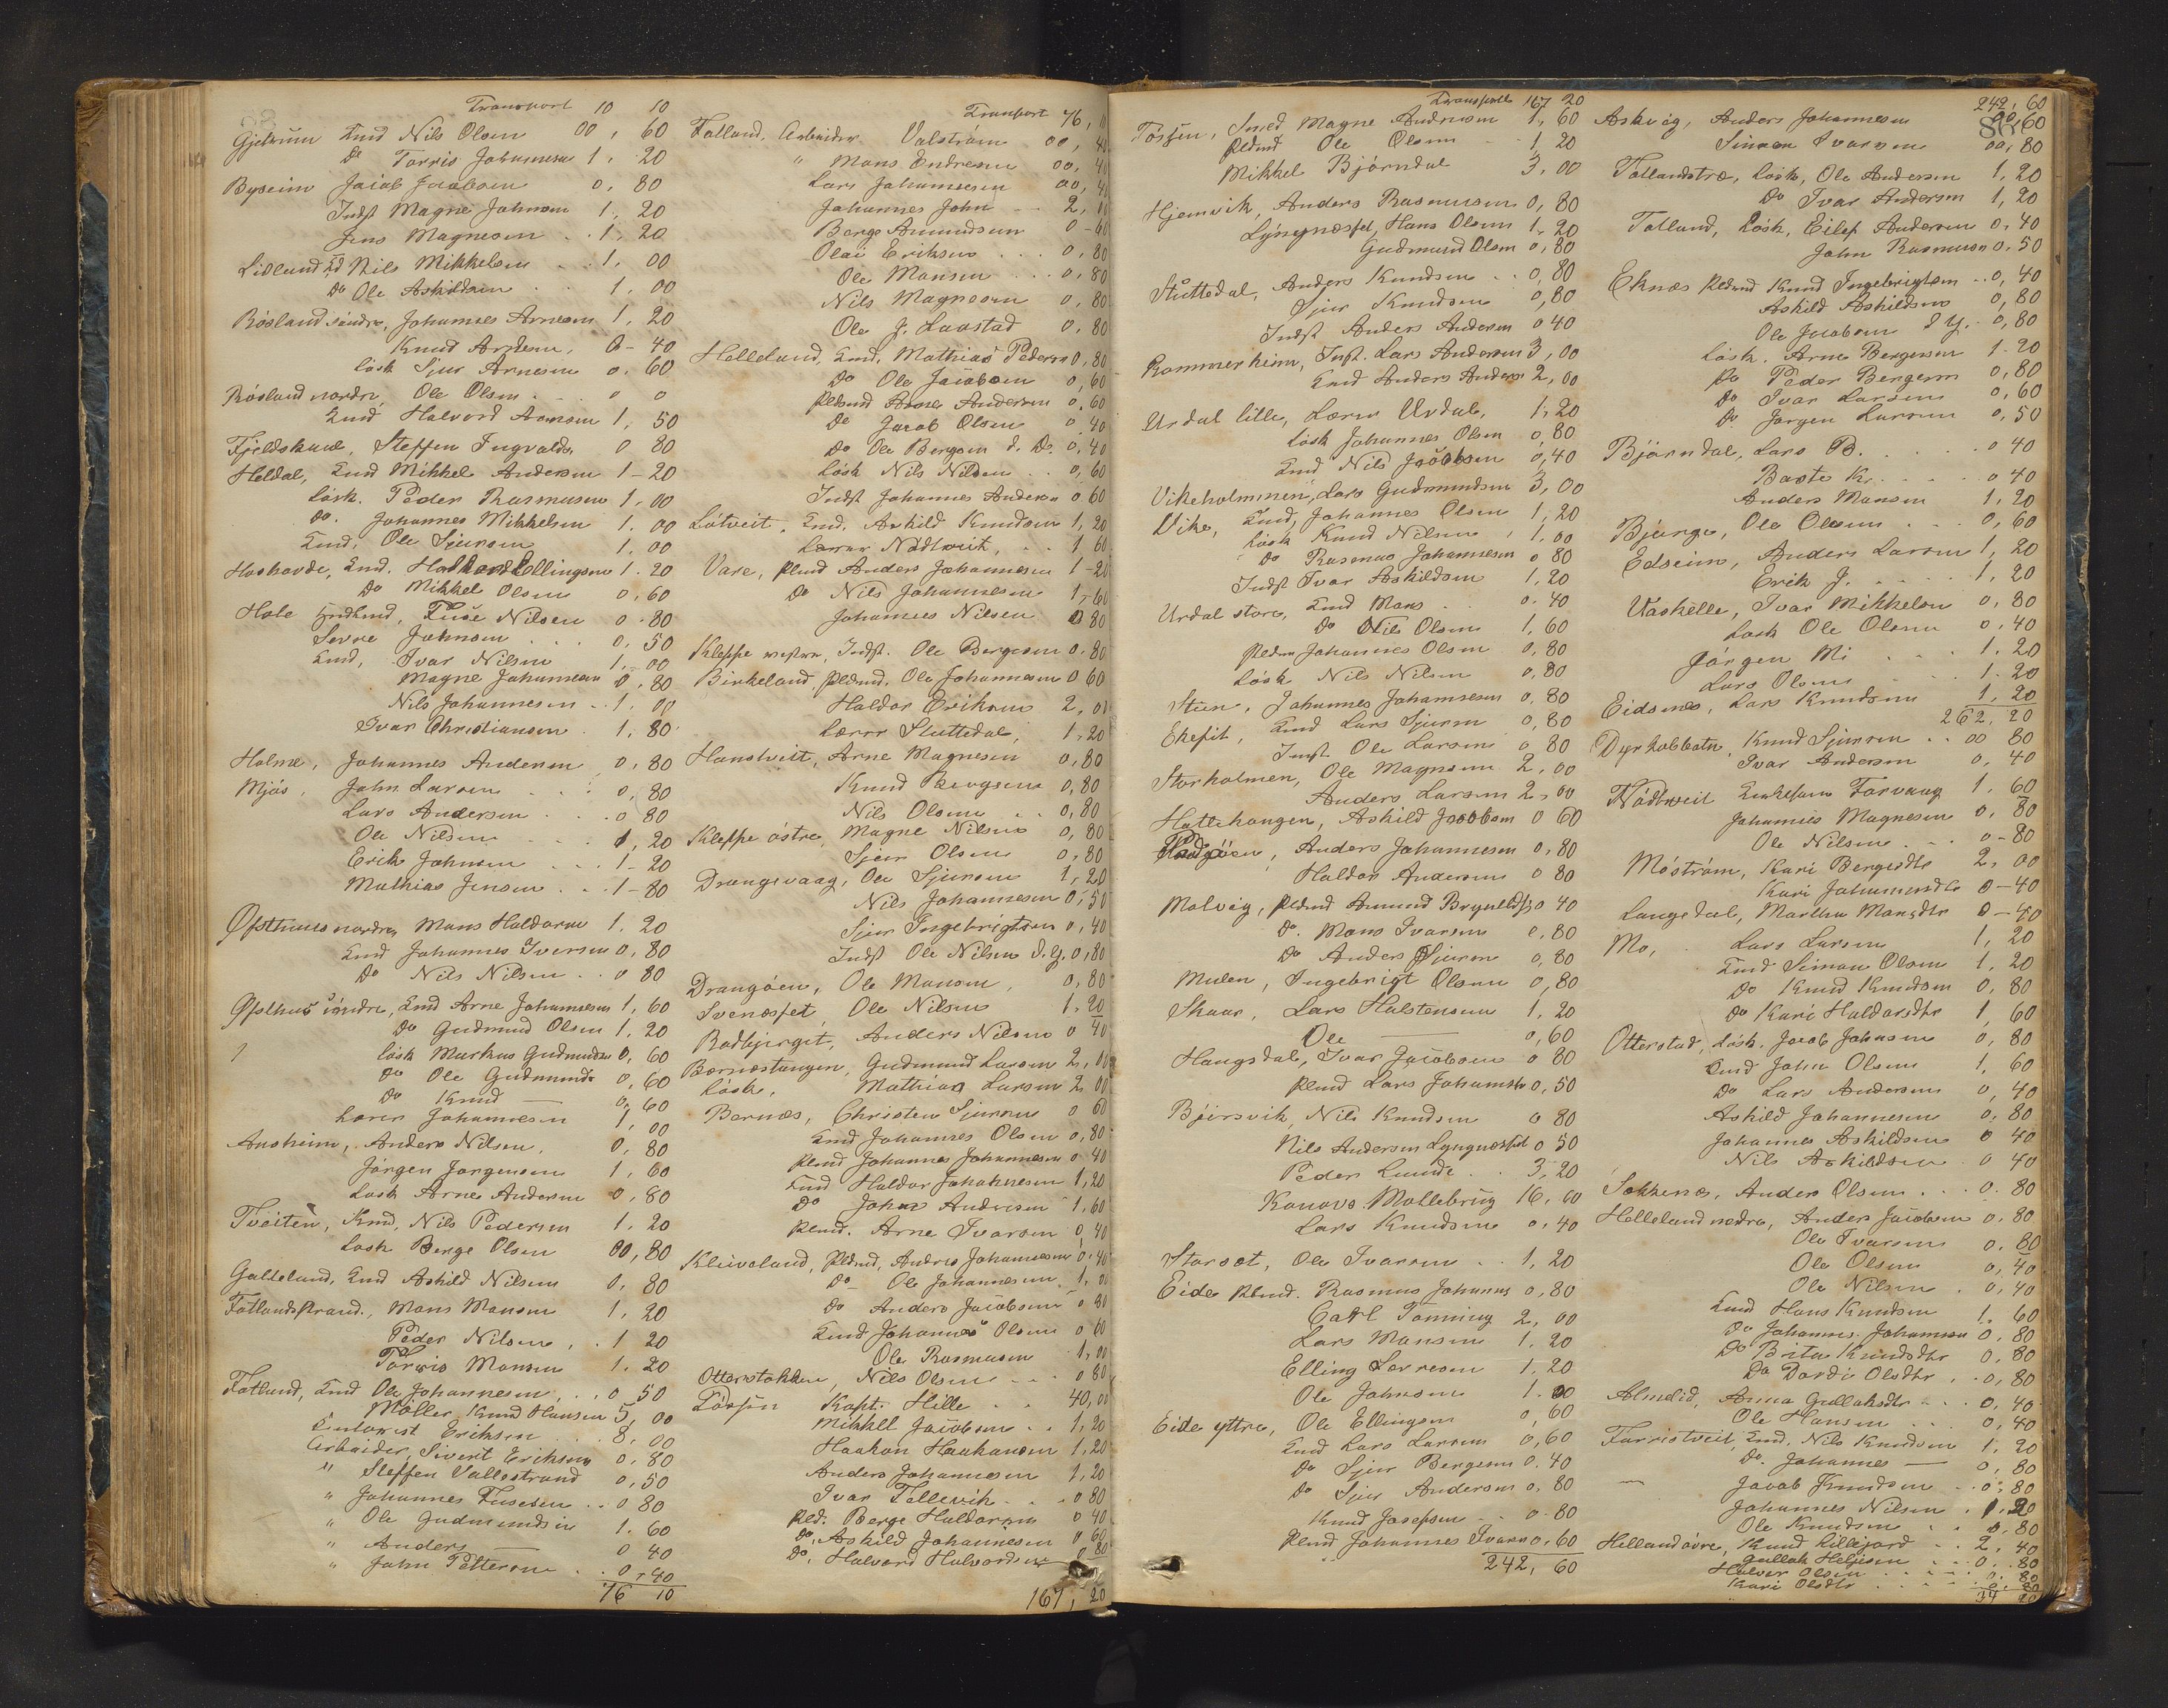 Transport 10 10
Gjeltrum Emd Nils Olsen 00, 60
Do Torris Johannesen 1, 20
Byseim Jacob Jacobsen 0, 80
Indst Magne Johnsen 1, 20
Jens Magnesen . . 1, 20
Lidland Nils Mikkelsen . . 1, 00
Do Ole Askildsen . . 1, 00
Røsland søndre, Johannes Arnesen 1, 20
Knud Arnesen, 0 - 40
Løsk Sjur Arnesen 0, 60
Røsland nordre, Ole Olsen . . 0 0
Emd Halvord Arnesen 1, 50
Fjeldskaal, Steffen Ingvalds. 0 80
Heldal, Emd Mikkel Andersen 1 - 20
Løsk. Peder Rasmusen 1, 00
Do. Johannes Mikkelsen 1, 00
Emd, Ole Sjursen 1, 00
Haskovde, Emd. Ellingsen 1. 20
Do Mikkel Olsen 0, 60
Hole Fuse Nilsen 0 - 80
Sevre Johnsen . . . 0, 50
Emd, Ivar Nilsen 1, 00
Magne Johannesen 0, 80
Nils Johannesen . . 1, 00
Ivar Christiansen . 1, 80
Holme, Johannes Andersen 0, 80
Mjøs, John Larsen . . . 0, 80
Lars Andersen . . . 0 80
Ole Nilsen . . . . 1, 20
Erik Johnsen . . . 1 - 20
Mathias Jensen . . . 1 - 80
Øfsthuus nordre, Mons Haldorsen 1. 20
Emd Johannes Iversen 0, 80
Do Nils Nilsen . . 0 80
Øfsthus søndre, Emd Arne Johannesen 1, 60
Do Gudmund Olsen 1, 20
Løsk Markus Gudmunds 0, 60
Do Ole Gudmunds 0, 60
Do Knud — 0, 60
Lærer Johannesen 1, 00
Ausheim, Anders Nilsen, 0, 80
Jørgen Jørgensen 1, 60
Løsk Arne Andersen 0, 80
Tveiten, Emd. Nils Pedersen 1. 20
Løsk Berge Olsen 00, 80
Galteland, Emd Askild Nilsen 0, 80
Fatlandsstrand., Mons Monsen 1, 20
Peder Nilsen . . 1 20
Torris Monsen 1. 20
Fatland, Emd Ole Johannesen, . . 0 50
Møller Knud Hansen 5, 00
Eriksen . . . 8, 00
Arbeider, Sivert Eriksen 0, 80
" Steffen Vallestrand 0, 50
" Johannes Fusesen . . 0 80
" Ole Gudmundsen 1. 60
" Anders — 0 40
" John Pettersen . . 0, 40
76 10
Transport 76, 10
Fatland, Arbeider Valstrøm 00, 40
" Mons Endresen 00, 40
Lars Johannesen 00, 40
Johannes John . . 2, 00
Berge Amundsen 0 - 60
Olai Eriksen . . . 0, 80
Ole Monsen . . . 0, 80
Nils Magnesen 0, 80
Ole J. Laastad 0, 80
Helleland, Emd. Mathias Peders 0, 80
Do Ole Jacobsen 0, 60
Pldmd Arne Andersen 0, 60
Do Jacob Olsen 0 40
Do Ole Bergesen d. Do. 0, 40
Løsk Nils Nilsen . . 0, 60
Indst Johannes Andersen 0 60
Løtveit, Emd. Askild Knudsen 1, 20
Lærer Nødtveit, . . 1 60
Vare, Plmd Anders Johannesen 1 - 20
Do Nils Johannesen 1, 60
Johannes Nilsen. 0 80
Kleppe vestre, Indst. Ole Bergesen 0. 80
Birkeland, Pldmd. Ole Johannesen 0 60
Haldor Eriksen 2, 00
Lærer Sluttedal, 1, 20
Hanstvett, Arne Magnesen 0, 80
Knud Bergsen 0, 80
Nils Olsen . . 0, 80
Kleppe østre, Magne Nilsen 0, 80
Sjur Olsen 0, 80
Drangevaag, Ole Sjursen 1, 20
Nils Johannesen 0, 50
Sjur Ingebrigtsen 0, 40
Indst Ole Nilsen d. y. 0, 80
Drangøen, Ole Monsen, 0, 80
Svenæsfet, Ole Nilsen 1. 20
Rødbjerget, Anders Nilsen 0 40
Bærnestangen, Gudmund Larsen 2, 00
Løsk, Mathias Larsen 2 00
Bernæs, Christen Sjursen 0 60
Emd Johannes Olsen 0, 80
Plmd Johannes Johannesen 0 40
Emd Haldor Johannesen 1, 20
Do John Andersen 1, 60
Plmd. Arne Ivarsen 0, 40
Kleiveland, Pldmd, Anders Johannesen 0. 40
Do Ole Johannesen 1, 00
Do Anders Jacobsen 0 80
Emd Johannes Olsen 0 60
Ole Rasmusen 1, 00
Otterstakken, Nils Olsen . . . 0 80
Tøssen Kapt. Hille . . 40, 00
Mikkel Jacobsen . . 1, 20
Haakon Haakonsen 1, 20
Anders Johannesen 1, 20
Ivar Tellevik . . . 0 80
Pld. Berge Haldorsen 0 40
Do, Askild Johannesen 0 60
Do, Halvord Halvordsen 0 80
167, 20
Transport 167 20
Tøssen, Smed Magne Andersen 1, 60
Pldmd Ole Olsen . . 1, 20
Mikkel Bjørndal 3, 00
Hjemvik, Anders Rasmusen 0, 80
Lyngnæsfet, Hans Olsen 1, 20
Gudmund Olsen 0, 80
Sluttedal, Anders Knudsen . . 0, 80
Sjur Knudsen 0, 80
Indst Anders Andersen 0 40
Rommerheim, Inst. Lars Andersen 3, 00
Emd Anders Anders 2, 00
Urdal lille, Lærer Urdal, 1, 20
Løsk Johannes Olsen 0, 80
Emd Nils Jacobsen 0, 40
Vikeholmmen, Lars Gudmundsen 3, 00
Vike, Emd, Johannes Olsen 1, 20
Løsk Knud Nilsen, 1, 00
Do Rasmus Johannesen 0 80
Indst Ivar Askildsen 1, 20
Urdal store, Emd Mons . . 0. 40
Do Nils Olsen 1, 60
Pldm Johannes Olsen 0, 80
Løsk Nils Nilsen 0, 80
Steen, Johannes Johannesen 0, 80
Ekefit, Emd Lars Sjursen 0, 80
Inst Ole Larsen 0, 80
Storholmen, Ole Magnesen 2, 00
Anders Larsen 2, 00
Hattehaugen, Askild Jacobsen 0 60
Anders Johannesen 0, 80
Haldor Andersen 0 80
Malvig, Pldmd Amund Brynilds 0 40
Do. Mons Ivarsen 0, 80
Do Anders Sjursen 0, 80
Mulen, Ingebrigt Olsen 0, 80
Skaar, Lars Halstensen 1, 20
Ole — 0, 60
Haugsdal, Ivar Jacobsen 0 80
Plmd Lars Johannes 0, 50
Bjørsvik, Nils Knudsen 0 80
Nils Andersen Lyngnæsfet 0 50
Peder Lunde . . 3, 20
Konovs Møllebrug 16, 60
Lars Knudsen 0, 40
Storset, Ole Ivarsen . . 1, 20
Eide Plmd. Rasmus Johannes 0, 80
Carl Tønning 2, 00
Lars Monsen 1, 20
Elling Larsen 1, 20
Ole Johnsen 1. 00
Eide yttre, Ole Ellingsen 0, 60
Emd Lars Larsen 0, 60
Do Sjur Bergesen 0. 40
Do Sjur Andersen 0, 80
Knud Josefsen . . 0 - 80
Plmd Johannes Ivars 0, 60
242, 60
242, 60
Askvig, Anders Johannesen 00, 60
Simon Ivarsen 00, 80
Fatlandstræ, Løsk, Ole Andersen 1, 20
Do Ivar Andersen 1, 20
Fatland, Løsk, Eilef Andersen 0, 40
John Rasmusen 0. 50
Eknæs Pldmd Knud Ingebrigtsen . . 0, 40
Askild Askildsen 0, 80
Ole Jacobsen d y. . 0, 80
Løsk. Arne Bergesen 1. 20
Do Peder Bergesen 0, 80
Do Ivar Larsen 0, 60
Do Jørgen Larsen 0, 50
Bjørndal, Lars B. . . . . . 0 40
Baste K. . . . . 0 40
Anders Monsen 1, 20
Bjørge, Ole Olsen . . . 0, 60
Edseim, Anders Larsen 1, 20
Erik J. . . . . 1, 20
Vaskelle, Ivar Mikkelsen 0, 80
Løsk Ole Olsen 0, 40
Jørgen Mi . . . 1. 20
Lars Olsen . . . 1. 20
Eidsnes, Lars Knudsen 1, 20
262, 20
Dyrkolbotn, Knud Sjursen . . 00 80
Ivar Andersen 0, 40
Nødtveit Enkefru Farvaag 1. 60
Johannes Magnesen 0, 80
Ole Nilsen . . . 0 - 80
Møstrøm, Kari Bergesdtr 2, 00
Kari Johannesdtr 0 - 40
Langedal, Martha Monsdtr 0 - 40
Mo, Lars Larsen 1, 20
Emd Simon Olsen 1. 20
Do Knud Knudsen 0, 80
Do Kari Haldorsdtr 1, 60
Otterstad, Løsk. Jacob Johnsen 0, 80
Emd John Olsen 1, 60
Do Lars Andersen 0, 40
Askild Johannesen 0. 80
Johannes Askildsen 0 40
Nils Askildsen . 0 40
Søkkenes, Anders Olsen . . . 0. 80
Helleland nedre, Anders Jacobsen 0. 80
Ole Ivarsen 0. 80
Ole Olsen 0, 40
Ole Nilsen . 0, 40
Emd Hans Knudsen 1, 60
Do Johannes Johannesen 0, 80
Do Brita Knudsdtr 0, 80
Do Dordi Olsdtr . . 0, 80
Almelid, Anna Gullaksdtr . . . 0, 40
Ole Hansen . . . 0, 40
Farristveit, Emd. Nils Knudsen 1, 20
Do. Johannes — 0, 80
Jacob Knudsen . . 0, 80
Johannes Nilsen . 1. 20
Ole Knudsen . . 0, 80
Helland øvre, Knud Lillejord . . 2, 40
Gullak Helgesen . . . 0, 80
Halvor Olsen . . . . 0. 80
Kari Olsdtr . . . . 0. 80
34 20